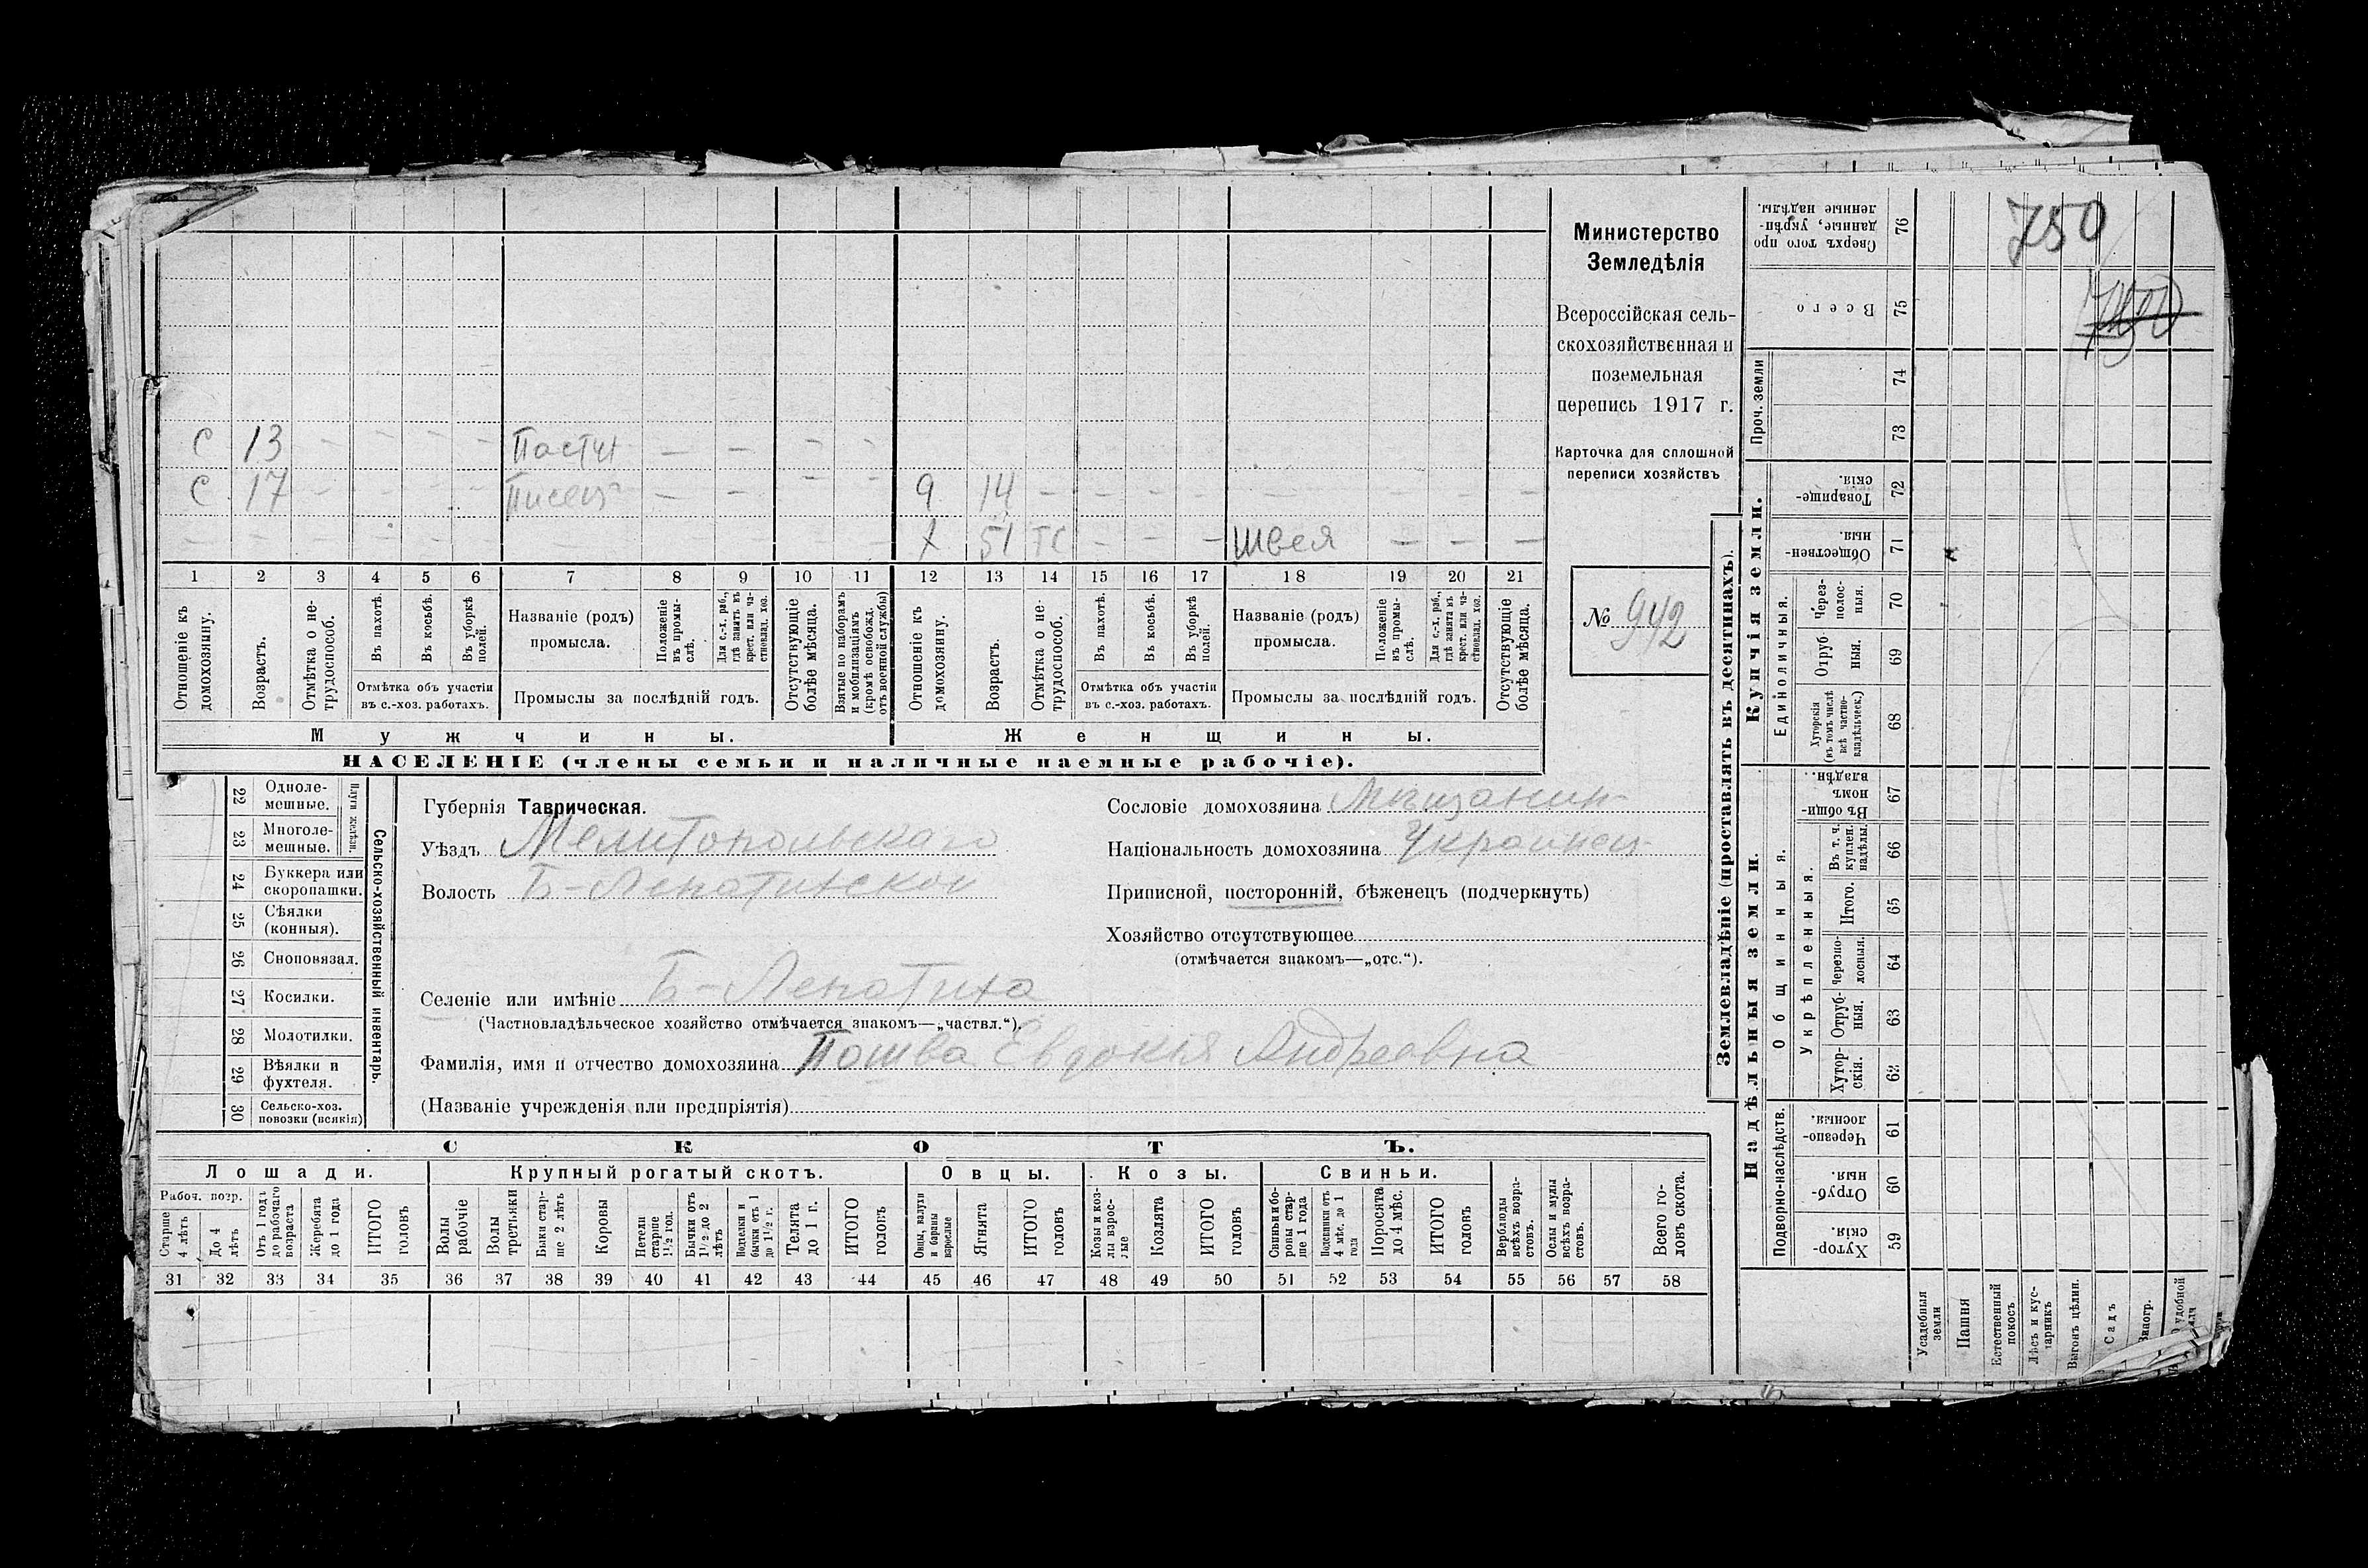 С 13 – – – – Пастух – – – –
С 17 – – – – Писецъ – – – – 9 14 – – – – – – – –
– – – – – – – х 51 ТС – – – Швея – – –
1 2 3 4 5 6 7 8 9 10 11 12 13 14 15 16 17 18 19 20 21
Отношеніе къ домохозяину.
Возрастъ.
Отмѣтка о не-
трудоспособ.
Въ пахотѣ.
Въ косьбѣ.
Въ уборкѣ полей.
Отмѣтка объ участіи
въ с.-хоз. работахъ.
Названіе (родъ)
промысла.
Положеніе въ промы-
слѣ.
Для с.-х. раб., гдѣ занятъ въ крест. или ча-
стновлад. хоз.
Промыслы за послѣдній годъ.
Отсутствующіе болѣе мѣсяца.
Взятые по наборамъ и мобилизаціямъ (кромѣ освобожд. отъ военной службы)
Отношеніе къ домохозяину.
Возрастъ.
Отмѣтка о не-
трудоспособ.
Въ пахотѣ.
Въ косьбѣ.
Въ уборкѣ полей.
Отмѣтка объ участіи
въ с.-хоз. работахъ.
Названіе (родъ)
промысла.
Положеніе въ промы-
слѣ.
Для с.-х. раб., гдѣ занята въ крест. или ча-
стновлад. хоз.
Промыслы за послѣдній годъ.
Отсутствующіе болѣе мѣсяца.
Мужчины.
Женщины.
НАСЕЛЕНІЕ (члены семьи и наличные наемные рабочіе).
Министерство
Земледѣлія
Всероссійская сель-
скохозяйственная и
поземельная
перепись 1917 г.
Карточка для сплошной
переписи хозяйствъ
№ 942
22 Одноле-
мешные.
23 Многоле-
мешные.
Плуги желѣзн.
24 Буккера или
скоропашки.
25 Сѣялки
(конныя).
26 Сноповязал.
27 Косилки.
28 Молотилки.
29 Вѣялки и
фухтеля.
30 Сельско-хоз.
повозки (всякія)
Сельско-хозяйственный инвентарь.
Губернія Таврическая.
Уѣздъ Мелитопольскаго
Волость Б-Лепатихской
Селеніе или имѣніе Б-Лепатиха
(Частновладѣльческое хозяйство отмѣчается знакомъ—„частвл.“).
Фамилія, имя и отчество домохозяина Пошва Евдокія Андреевна
(Названіе учрежденія или предпріятія)
Сословіе домохозяина Мѣщанин
Національность домохозяина Украинец
Приписной, посторонній, бѣженецъ (подчеркнуть)
Хозяйство отсутствующее
(отмѣчается знакомъ—„отс.“).
СКОТЪ.
Лошади. Крупный рогатый скотъ. Овцы. Козы. Свиньи.
Рабоч. возр.
Старше 4 лѣтъ
До 4 лѣтъ
Отъ 1 года до рабочаго возраста
Жеребята до 1 года
ИТОГО головъ
Волы рабочіе
Волы третьяки
Быки стар-
ше 2 лѣтъ
Коровы
Нетели старше 1½ год.
Бычки отъ 1½ до 2 лѣтъ
Подтелки и бычки отъ 1 до 1½ г.
Телята до 1 г.
ИТОГО головъ
Овцы, валухи и бараны взрослые
Ягнята
ИТОГО головъ
Козы и коз-
лы взрос-
лые
Козлята
ИТОГО головъ
Свиньи и бо-
ровы стар-
ше 1 года
Подсвинки отъ 4 мѣс. до 1 года
Поросята до 4 мѣс.
ИТОГО головъ
Верблюды всѣхъ возра-
стовъ.
Ослы и мулы всѣхъ возра-
стовъ.
Всего го-
ловъ скота.
31 32 33 34 35 36 37 38 39 40 41 42 43 44 45 46 47 48 49 50 51 52 53 54 55 56 57 58
Землевладѣніе (проставлять въ десятинахъ).
Надѣльныя земли.
Купчія земли.
Проч. земли
Подворно-наслѣдств.
Общинныя.
Укрѣпленныя.
Единоличныя.
Сверхъ того про
данные, укрѣп-
ленные надѣлы. 76
Всего 75
74
73
Товарище-
скія. 72
Обществен-
ныя 71
Через-
полос-
ныя. 70
Отруб-
ныя. 69
Хуторскія (въ томъ числѣ всѣ частно-
владѣльческ.) 68
Въ общин-
номъ владѣн. 67
Въ т. ч. куплен. надѣлы. 66
Итого. 65
Черезпо-
лосныя. 64
Отруб-
ныя. 63
Хутор-
скія. 62
Черезпо-
лосныя. 61
Отруб-
ныя. 60
Хутор-
скія. 59
Усадебныя земли
Пашня
Естественный покосъ
Лѣсъ и кус-
тарникъ
Выгонъ цѣлин.
Садъ
Виногр.
удобной
750
750